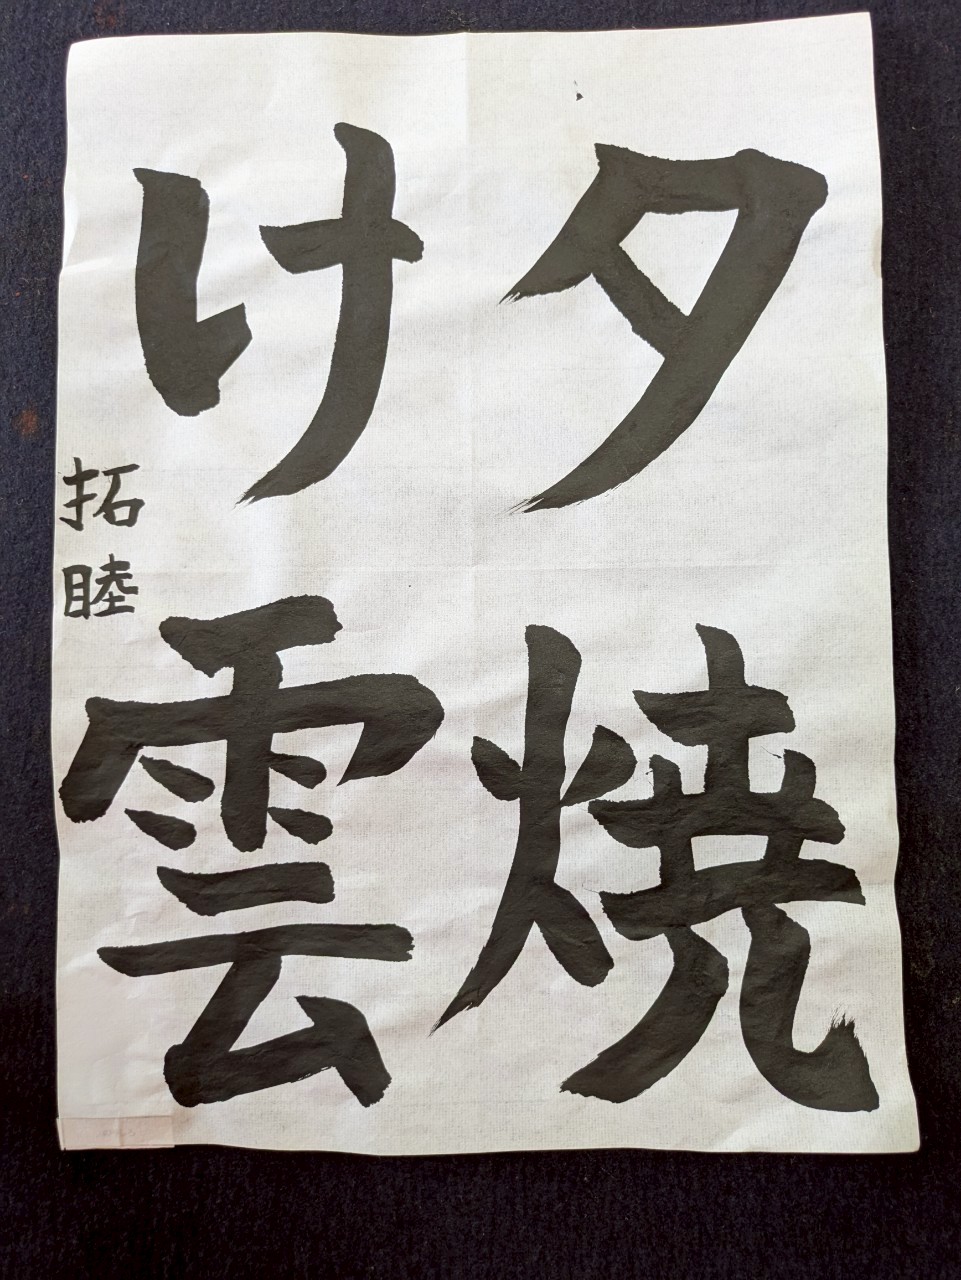 夕焼
け雲
拓睦